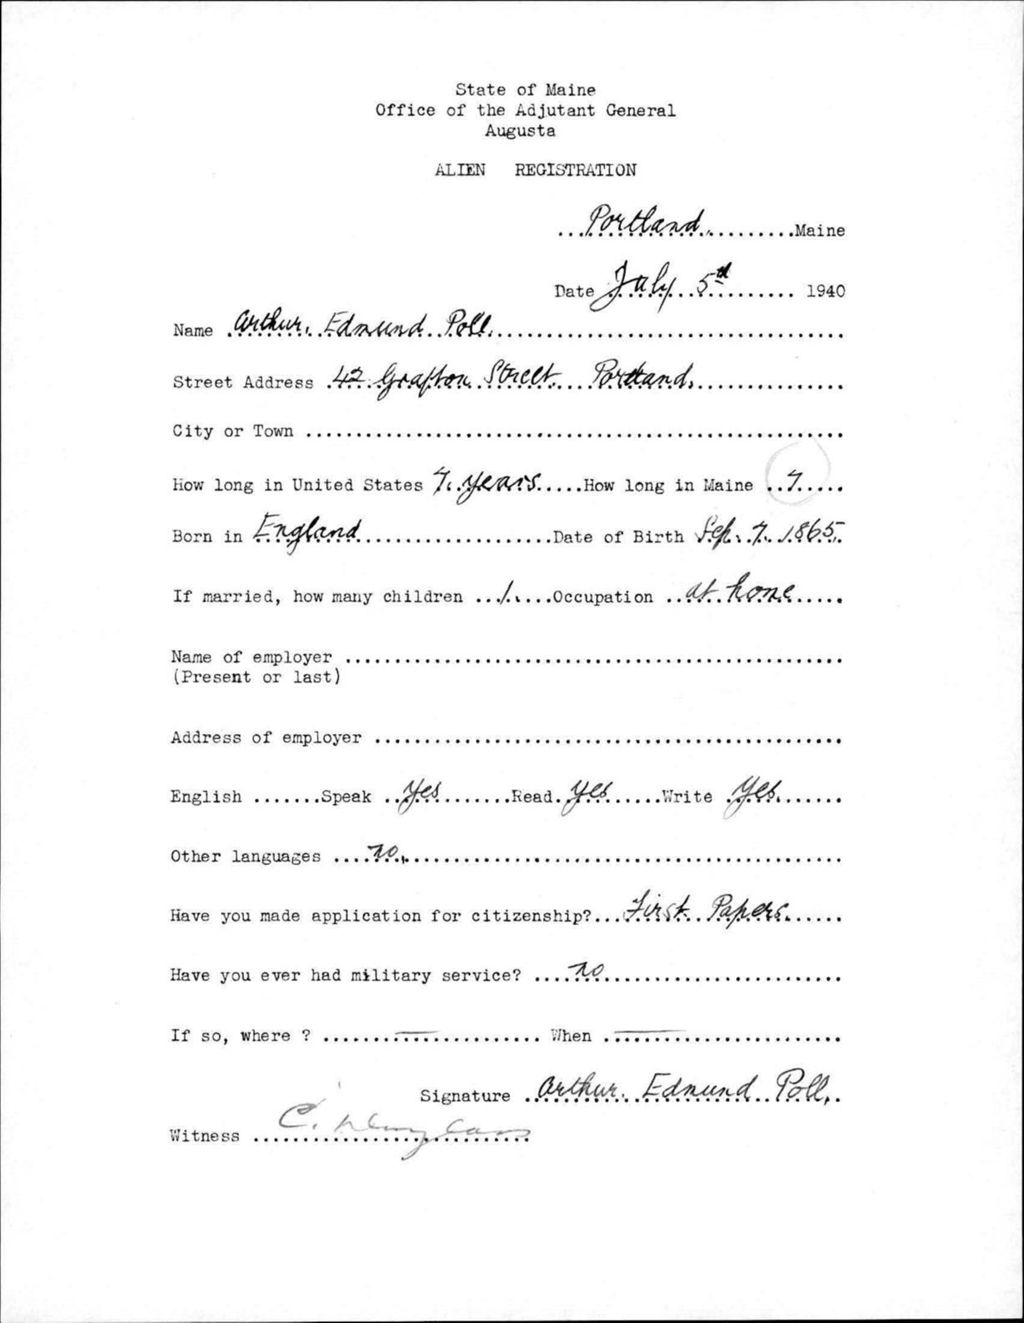 State of Maine
Office of the Adjutant General
Augusta
ALIEN REGISTRATION
...Portland...........Maine
Date July 5th 1940
Name Arthur. Edmund Poll.
Street Address 42 Grafton Street. Portland.
City or Town
How long in United States 7. years. How long in Maine 7
Born in England Date of Birth Sep. 7. 1865.
If married, how many children 1. Occupation at home
Name of employer
(Present or last)
Address of employer
English Speak Yes Read Yes Write Yes.
Other languages no.
Have you made application for citizenship? First Papers.
Have you ever had military service? no
If so, where ? — When —
Signature Arthur. Edmund Poll.
Witness C.